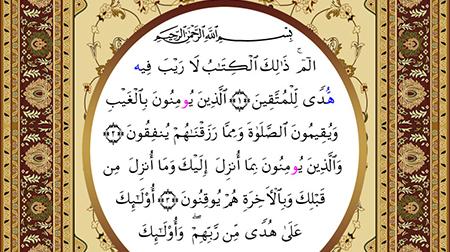 بِسْمِ اللَّهِ الرَّحْمَٰنِ الرَّحِيمِ
الٓمٓ ۚ ذَٰلِكَ اَلْكِتَٰبُ لَا رَيْبَ فِيه
هُّدٗى لِّلْمُتَّقِينَ ١ اَلَّذِينَ يُومِنُونَ بِالْغَيْبِ
وَيُقِيمُونَ اَلصَّلَوٰةَ وَمِمَّا رَزَقْنَٰهُمْ يُنفِقُونَ ٢
وَالَّذِينَ يُومِنُونَ بِمَا أُنزِلَ إِلَيْكَ وَمَا أُنزِلَ مِن
قَبْلِكَ وَبِالْأَخِرَةِ هُمْ يُوقِنُونَ ٣ أُوْلَٰٓئِكَ
عَلَىٰ هُدٗى مِّن رَّبِّهِمْ ۖ وَأُوْلَٰٓئِكَ